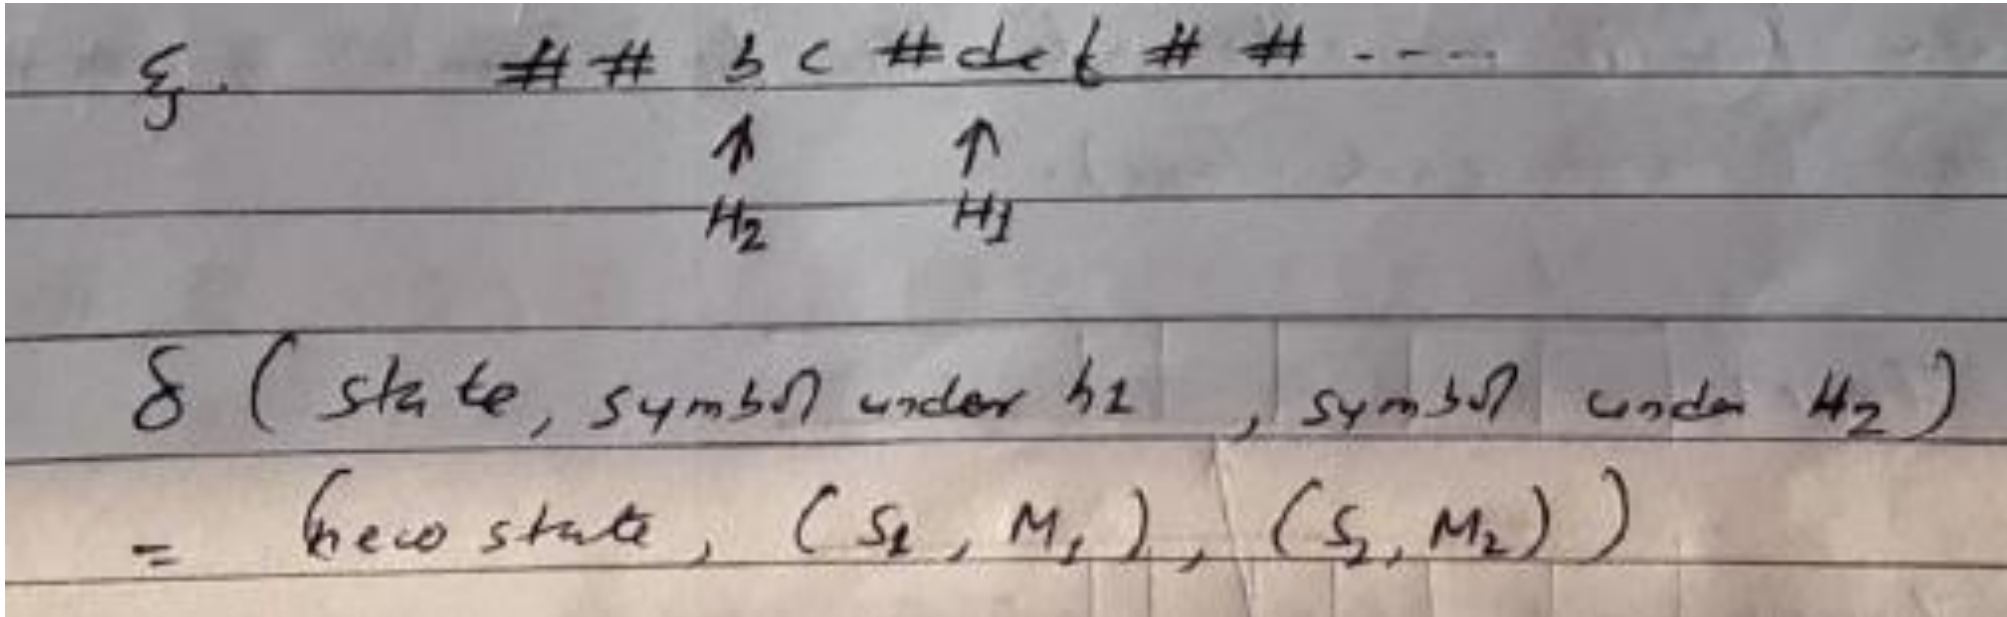 Eg. # # b c # d e f # # ----
↑ ↑
H2 H1
δ ( state, symbol under h1 , symbol under H2 )
= (new state, (S1, M1), (S2, M2))